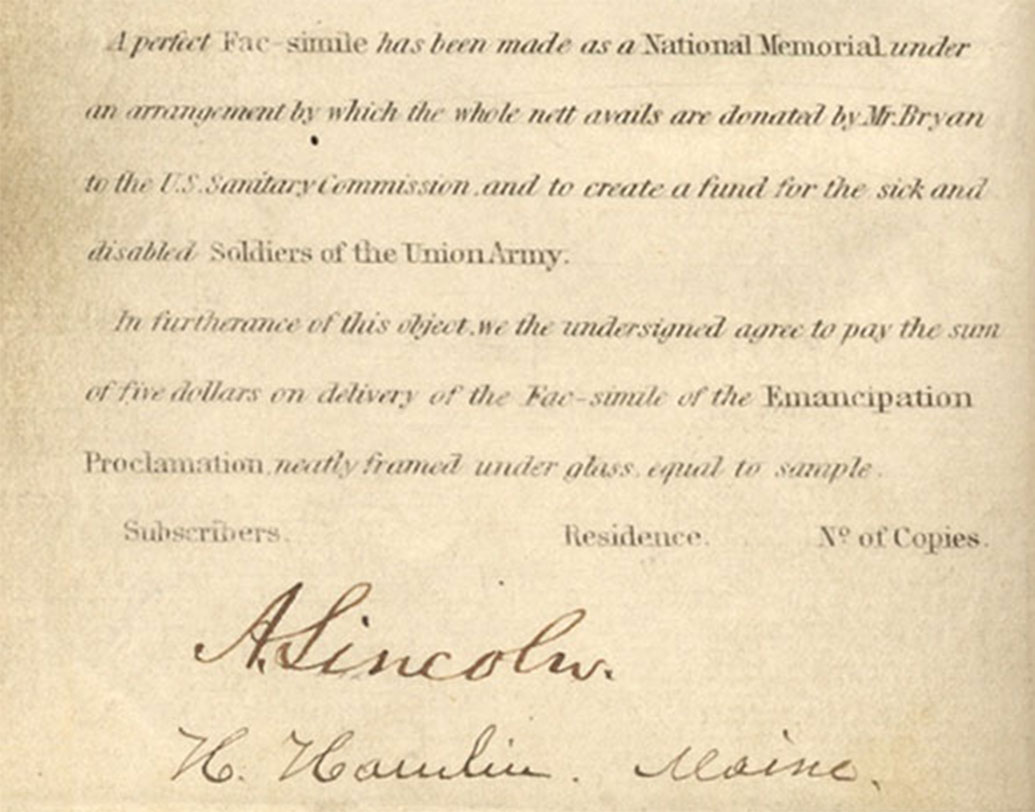 A perfect Fac-simile has been made as a National Memorial, under
an arrangement by which the whole nett avails are donated by Mr. Bryan
to the U.S. Sanitary Commission, and to create a fund for the sick and
disabled Soldiers of the Union Army.
In furtherance of this object, we the undersigned agree to pay the sum
of five dollars on delivery of the Fac-simile of the Emancipation
Proclamation, neatly framed under glass, equal to sample.
Subscribers. Residence. Nº of Copies.
A. Lincoln.
H. Hamlin. Maine.